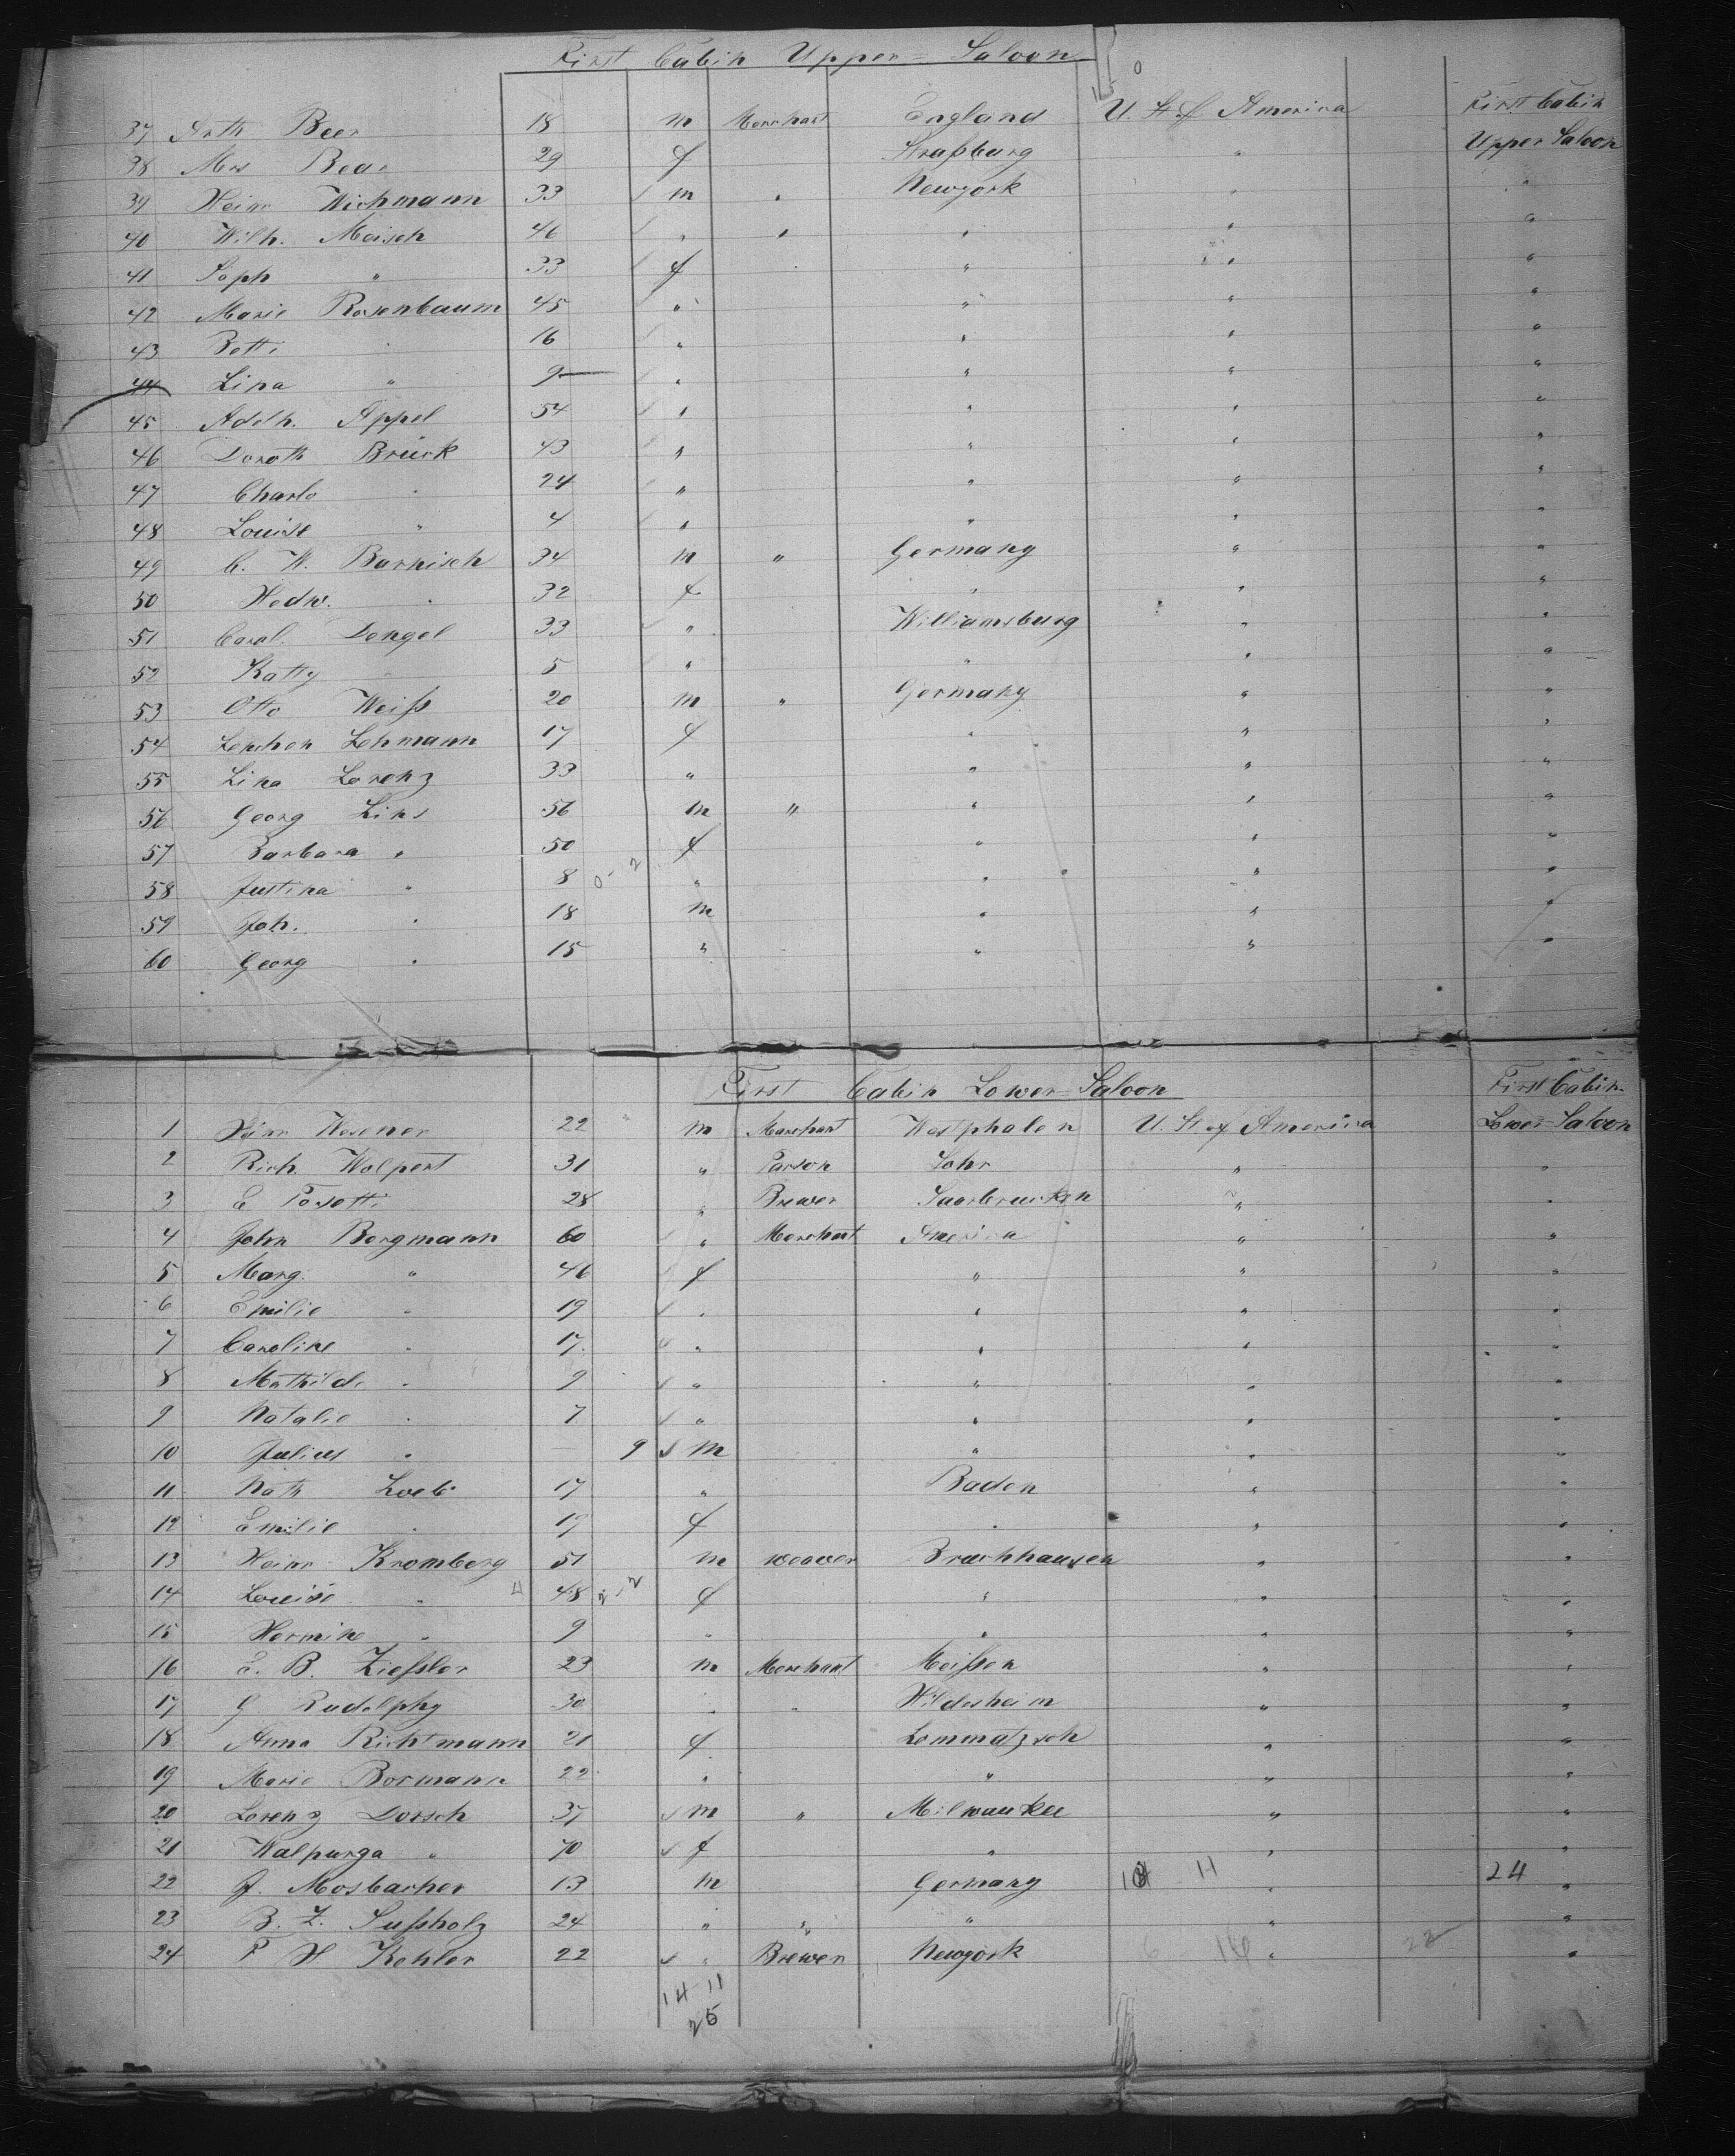 First Cabin Upper-Saloon
37 Arth Beer 18 m Merchant England U. St. of America First Cabin
38 Mrs Bear 29 f Straßburg " Upper Saloon
39 Heinr Wichmann 33 m " Newyork " "
40 Wilh. Meisch 46 " " " " "
41 Soph " 33 f " " "
42 Marie Rosenbaum 45 " " " "
43 Betti " 16 " " " "
44 Lina " 9 " " " "
45 Adelh. Appel 54 " " " "
46 Doroth Brück 43 " " " "
47 Charlo " 24 " " " "
48 Louise " 4 " " " "
49 C. W. Barnisch 34 m " Germany " "
50 Hedw. " 32 f " " "
51 Carol. Dengel 33 " Williamsburg " "
52 Katty " 5 " " " "
53 Otto Weiß 20 m " Germany " "
54 Lenchen Lehmann 17 f " " "
55 Lina Lorenz 33 " " " "
56 Georg Lins 56 m " " " "
57 Barbara " 50 f " " "
58 Justina " 8 0-2 " " " "
59 Joh. " 18 m " " "
60 Georg " 15 " " " "
First Cabin Lower-Saloon First Cabin
1 Heinr Wesener 22 m Merchant Westphalen U. St. of America Lower-Saloon
2 Rich. Wolpert 31 " Parson Lohr " "
3 E Posotti 28 " Brewer Saarbrucken " "
4 John Bergmann 60 " Merchant America " "
5 Marg. " 46 f " " "
6 Emilie " 19 " " " "
7 Caroline " 17 " " " "
8 Mathilde " 9 " " " "
9 Natalie " 7 " " " "
10 Julius " 9 m " " "
11 Nath Loeb 17 " Baden " "
12 Emilie " 19 f " " "
13 Heinr Kromberg 51 m weaver Bruchhausen " "
14 Louise " 48 f " " "
15 Hermine " 9 " " " "
16 E. B. Zießler 23 m Merchant Meißen " "
17 G Rudolphy 30 " " Hildesheim " "
18 Anna Richtmann 21 f Lommatzsch " "
19 Marie Bormann 22 " " " "
20 Lorenz Dorsch 37 m " Milwaukee " "
21 Walpurga " 70 f " " "
22 J. Mosbacher 13 m Germany 11 " 24 "
23 B. Z. Sußholz 24 " " " " "
24 F H Kohler 22 " Brewer Newyork 6 16 " 22 "
14-11
25